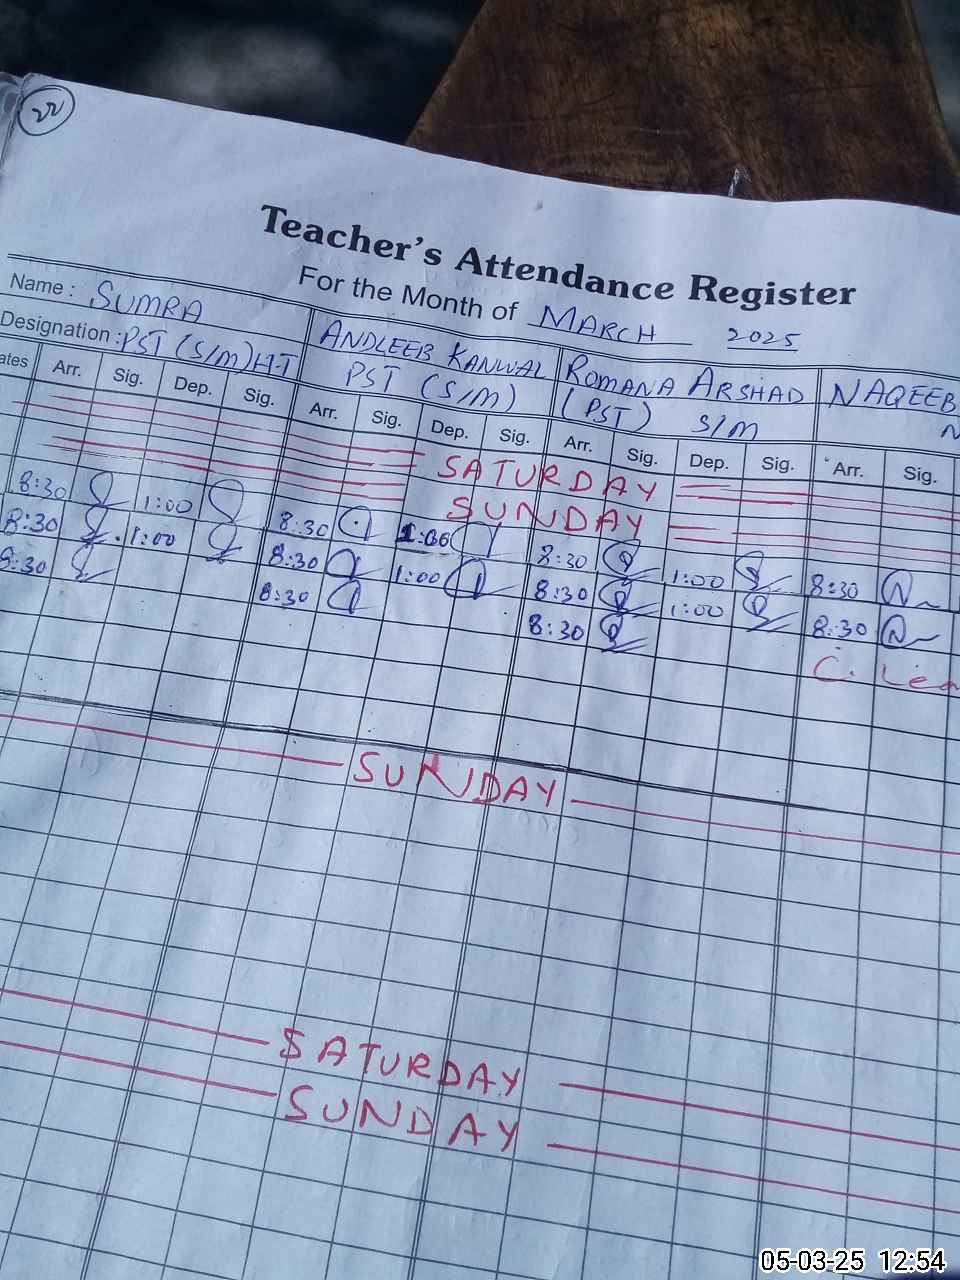 Teacher's Attendance Register
For the Month of MARCH 2025
Name : SUMRA ANDLEEB KANWAL ROMANA ARSHAD NAQEEB
Designation : PST (S/M) H-T PST (S/M) (PST) S/M N
ates Arr. Sig. Dep. Sig. Arr. Sig. Dep. Sig. Arr. Sig. Dep. Sig. Arr. Sig.
SATURDAY
SUNDAY
8:30 1:00 8:30 1:00 8:30 1:00 8:30
8:30 1:00 8:30 1:00 8:30 1:00 8:30
8:30 8:30 8:30 C. Lea
SUNDAY
SATURDAY
SUNDAY
05-03-25 12:54